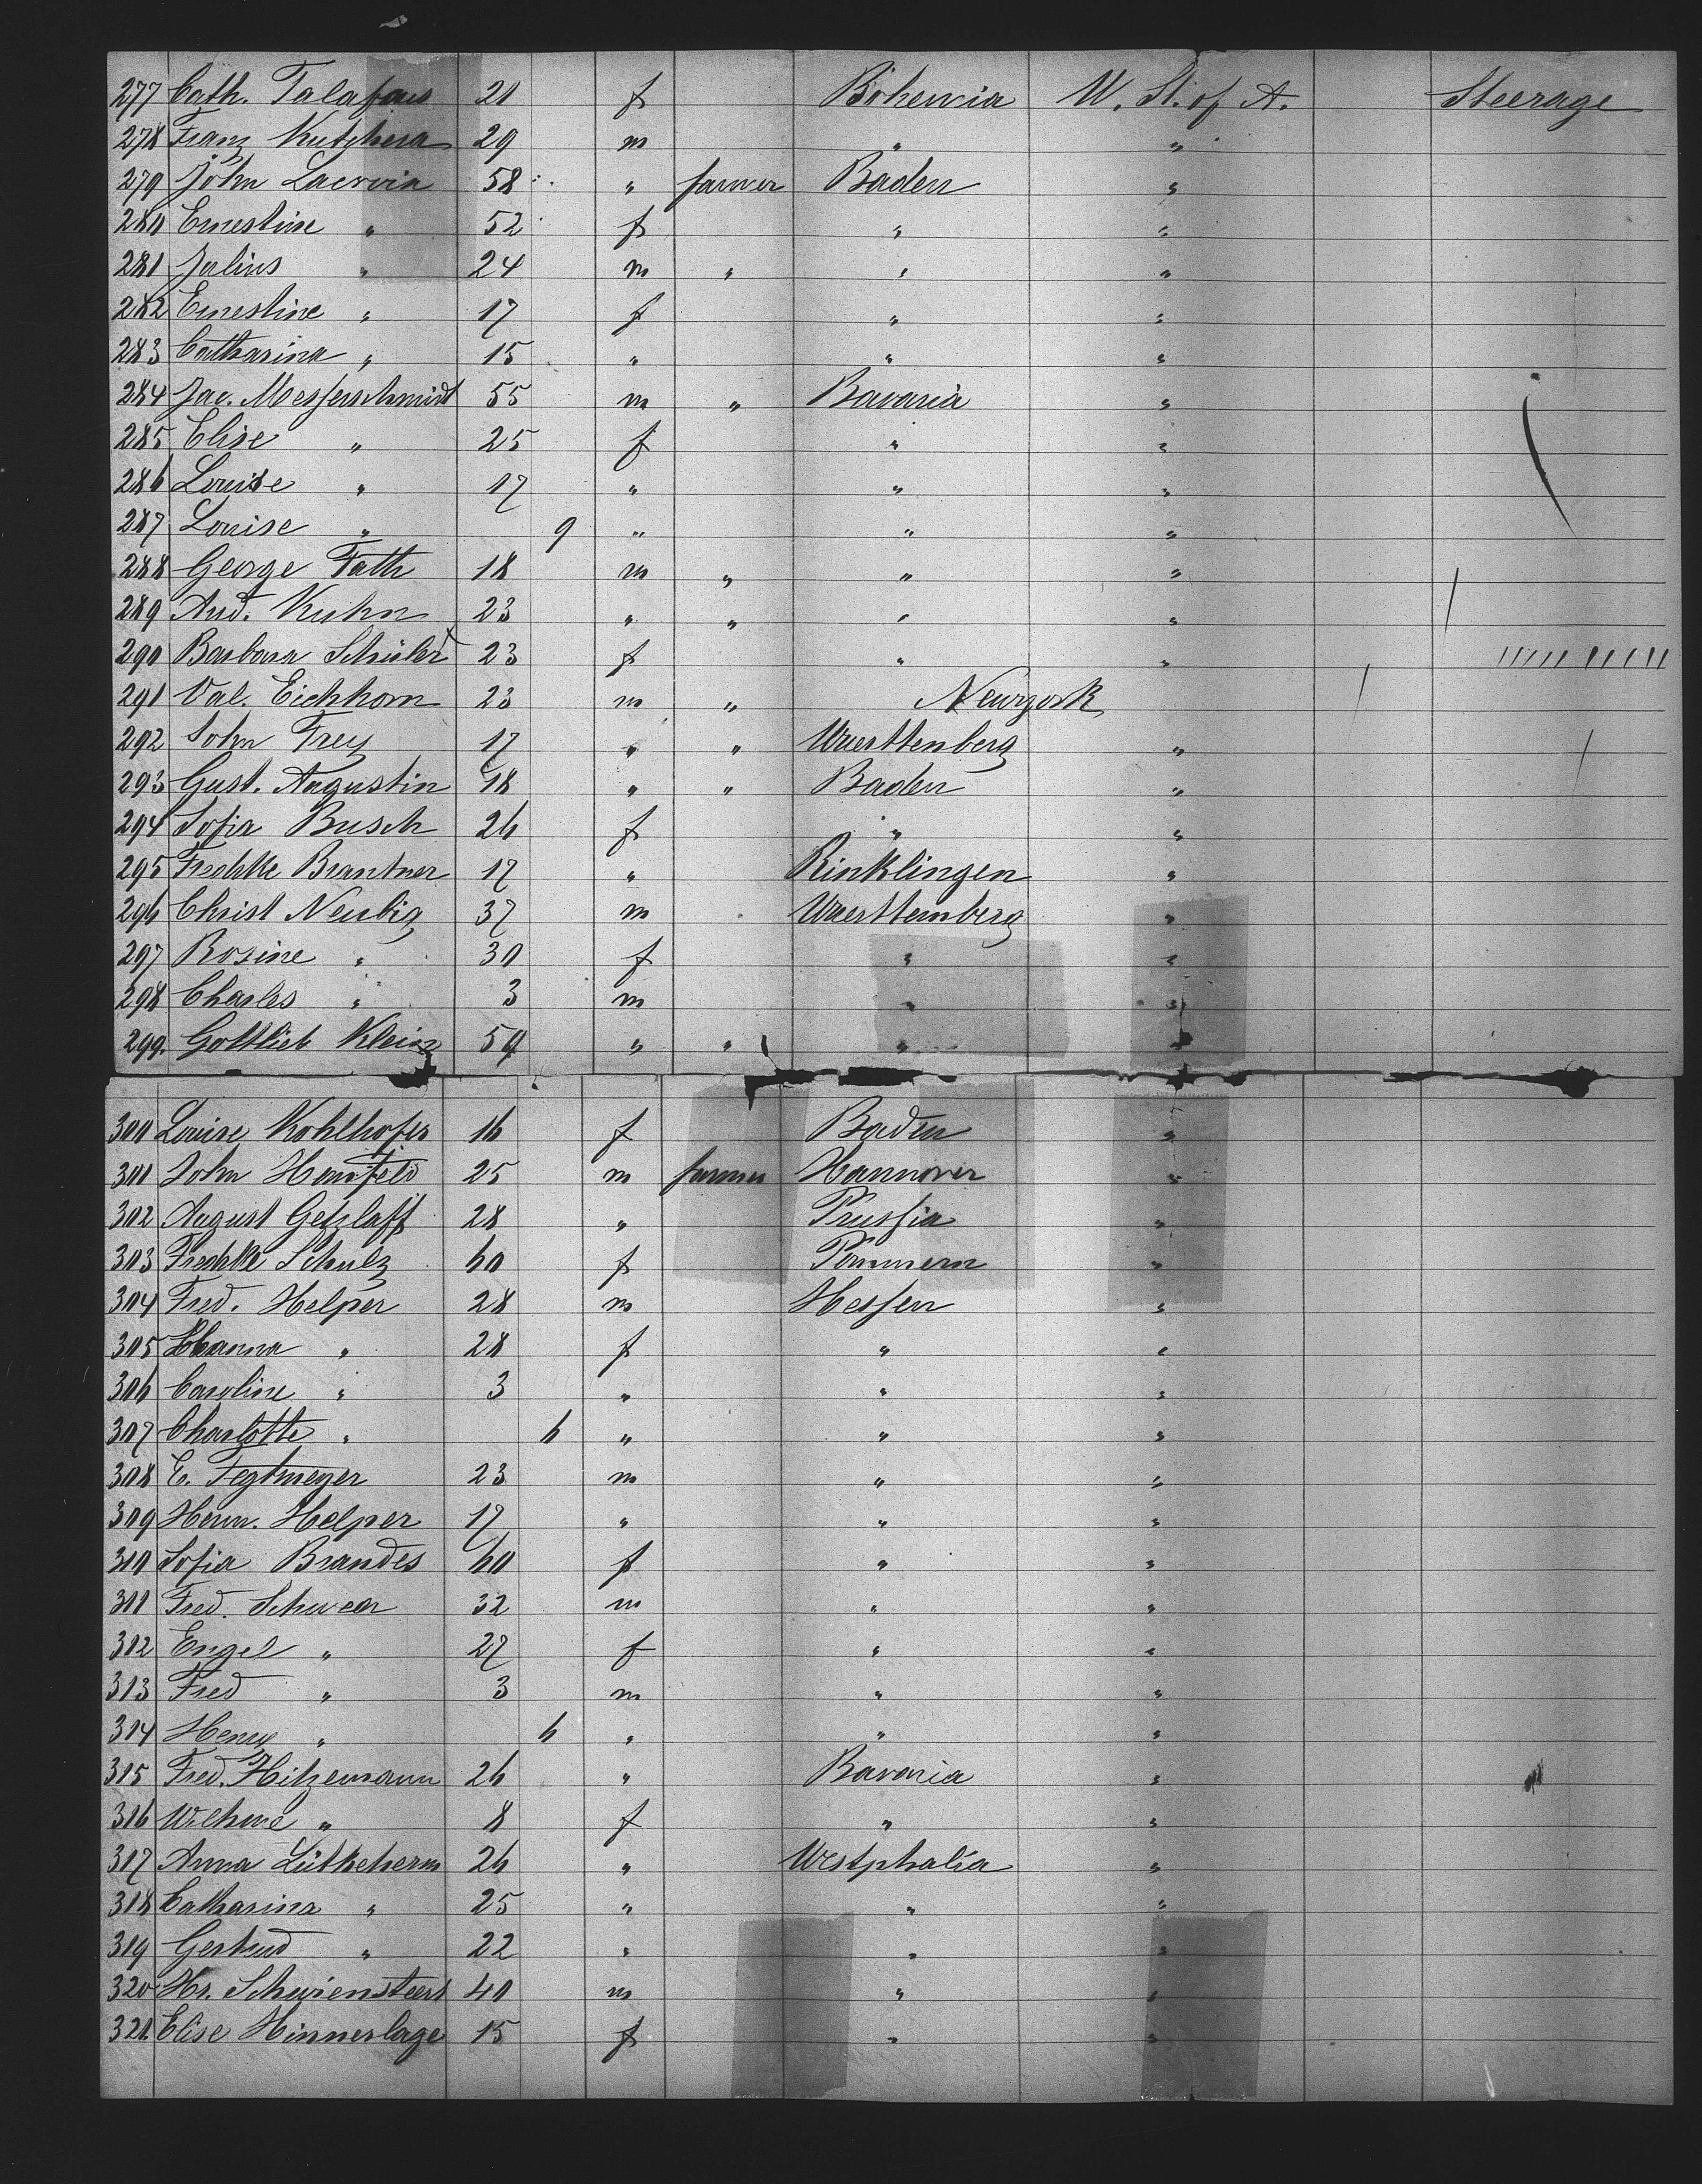 277 Cath. Talafous 21 f Böhemia U. St. of A. Steerage
278 Franz Kutschera 29 m " "
279 John Lacroix 58 " farmer Baden "
280 Ernestine " 52 f " "
281 Julius " 24 m " " "
282 Ernestine " 17 f " "
283 Catharina " 15 " " "
284 Jac. Messerschmidt 55 m " Bavaria "
285 Elise " 25 f " "
286 Louise " 17 " " "
287 Louise " 9 " " "
288 George Fath 18 m " " "
289 And. Kuhn 23 " " " "
290 Barbara Schüler 23 f " "
291 Val. Eichhorn 23 m " Newyork
292 John Frey 17 " " Wuerttenberg "
293 Gust. Augustin 18 " " Baden "
294 Sofia Busch 26 f " "
295 Fredrke Brantner 17 " Rinklingen "
296 Christ Neubig 37 m Wuerttemberg "
297 Rosine " 30 f " "
298 Charles " 3 m " "
299. Gottlieb Klein 59 " " " "
300 Louise Kohlhofer 16 f Baden "
301 John Hennfeld 25 m farmer Hannover "
302 August Getzlaff 28 " Prussia "
303 Fredrke Schulz 60 f Pommern "
304 Fred. Helper 28 m Hessen "
305 Hanna " 28 f " "
306 Caroline " 3 " " "
307 Charlotte " 6 " " "
308 E. Tegtmeyer 23 m " "
309 Herm. Helper 17 " " "
310 Sofia Brandes 60 f " "
311 Fred. Schwear 32 m " "
312 Engel " 27 f " "
313 Fred " 3 m " "
314 Henry " 6 " " "
315 Fred. Hitzemann 26 " Bavaria "
316 Wilhme " 8 f " "
317 Anna Lütkeherm 26 " Westphalia "
318 Catharina " 25 " " "
319 Gertrud " 22 " " "
320 Hr. Schwiensteert 40 m " "
321. Elise Hinnerlage 15 f " "